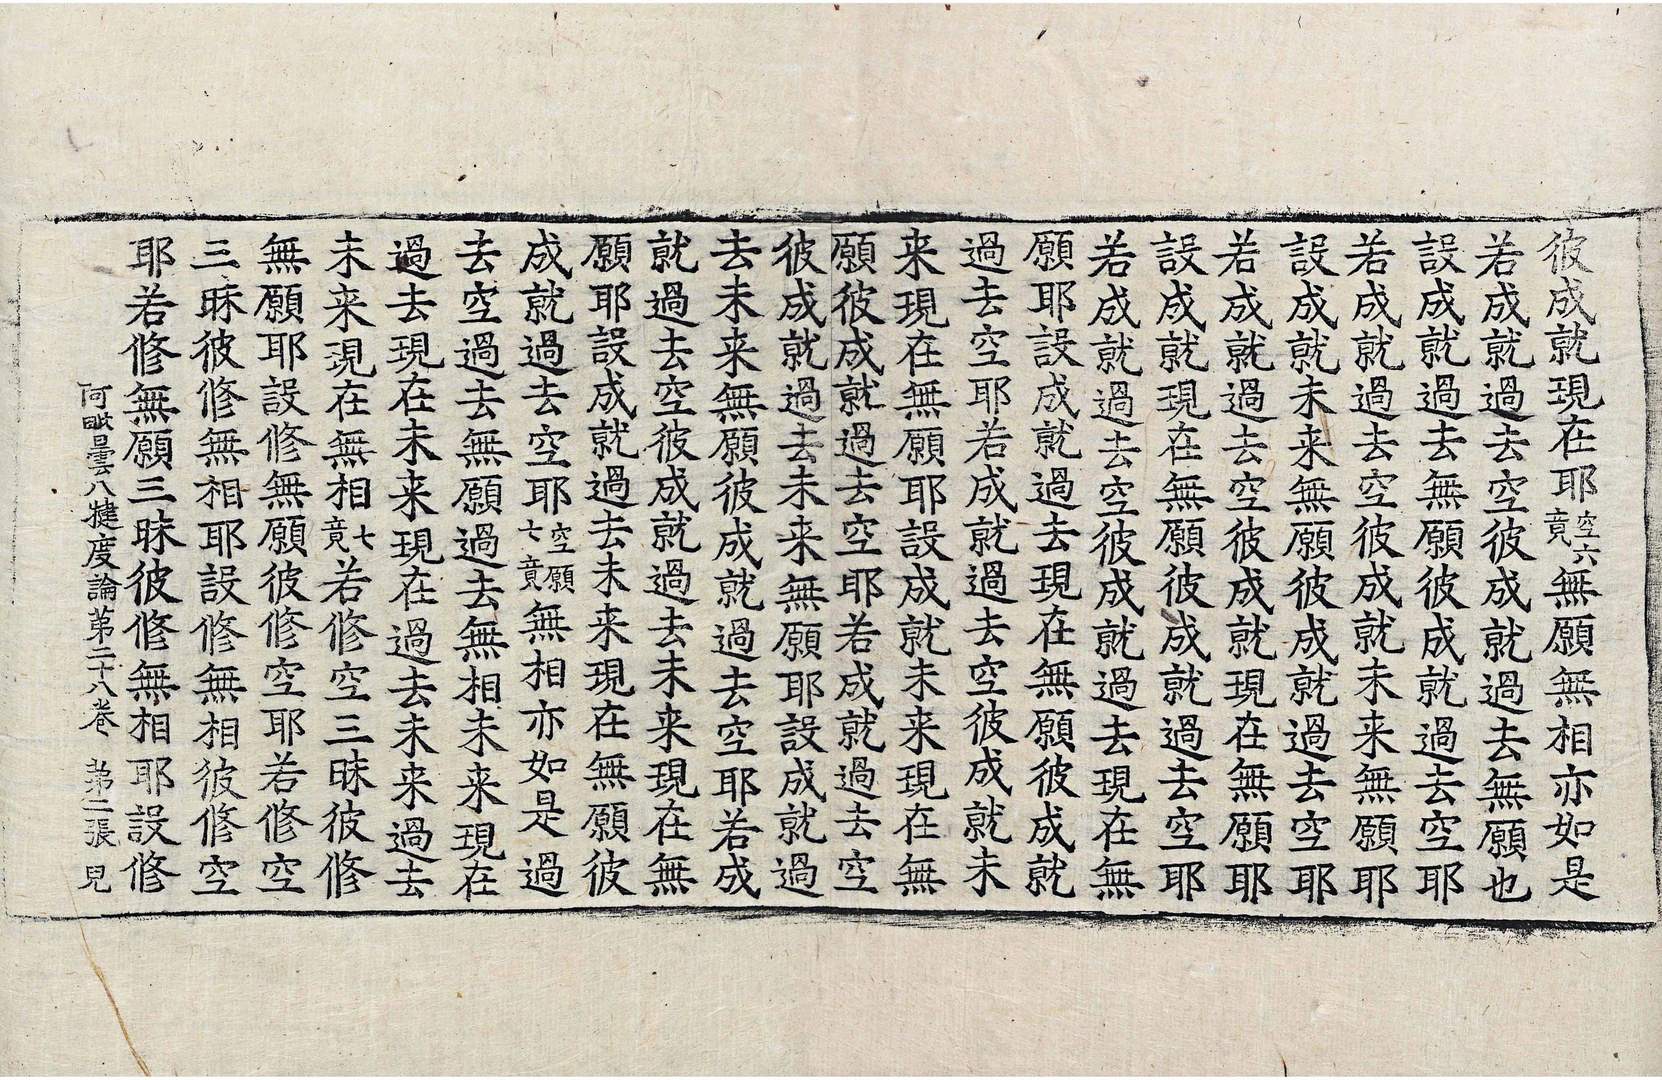 彼成就現在耶空六竟無願無相亦如是
若成就過去空彼成就過去無願也
設成就過去無願彼成就過去空耶
若成就過去空彼成就未来無願耶
設成就未来無願彼成就過去空耶
若成就過去空彼成就現在無願耶
設成就現在無願彼成就過去空耶
若成就過去空彼成就過去現在無
願耶設成就過去現在無願彼成就
過去空耶若成就過去空彼成就未
来現在無願耶設成就未来現在無
願彼成就過去空耶若成就過去空
彼成就過去未来無願耶設成就過
去未来無願彼成就過去空耶若成
就過去空彼成就過去未来現在無
願耶設成就過去未来現在無願彼
成就過去空耶空願七竟無相亦如是過
去空過去無願過去無相未来現在
過去現在未来現在過去未来過去
未来現在無相七竟若修空三昧彼修
無願耶設修無願彼修空耶若修空
三昧彼修無相耶設修無相彼修空
耶若修無願三昧彼修無相耶設修
阿毗曇八犍度論苐二十八卷 苐二張 見